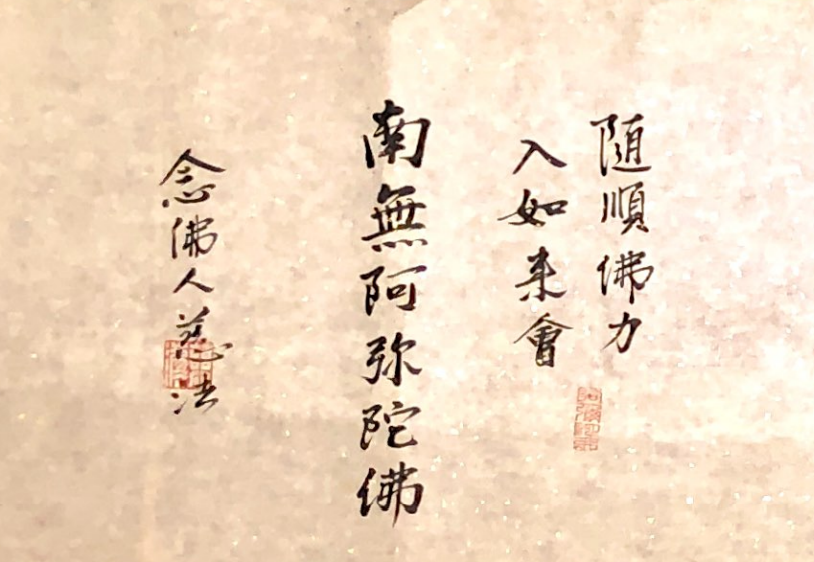 随順佛力
入如来會
南無阿弥陀佛
念佛人慈法